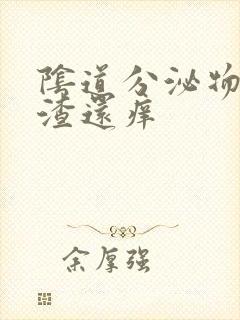 陰道分泌物
渣還痒
余厚强